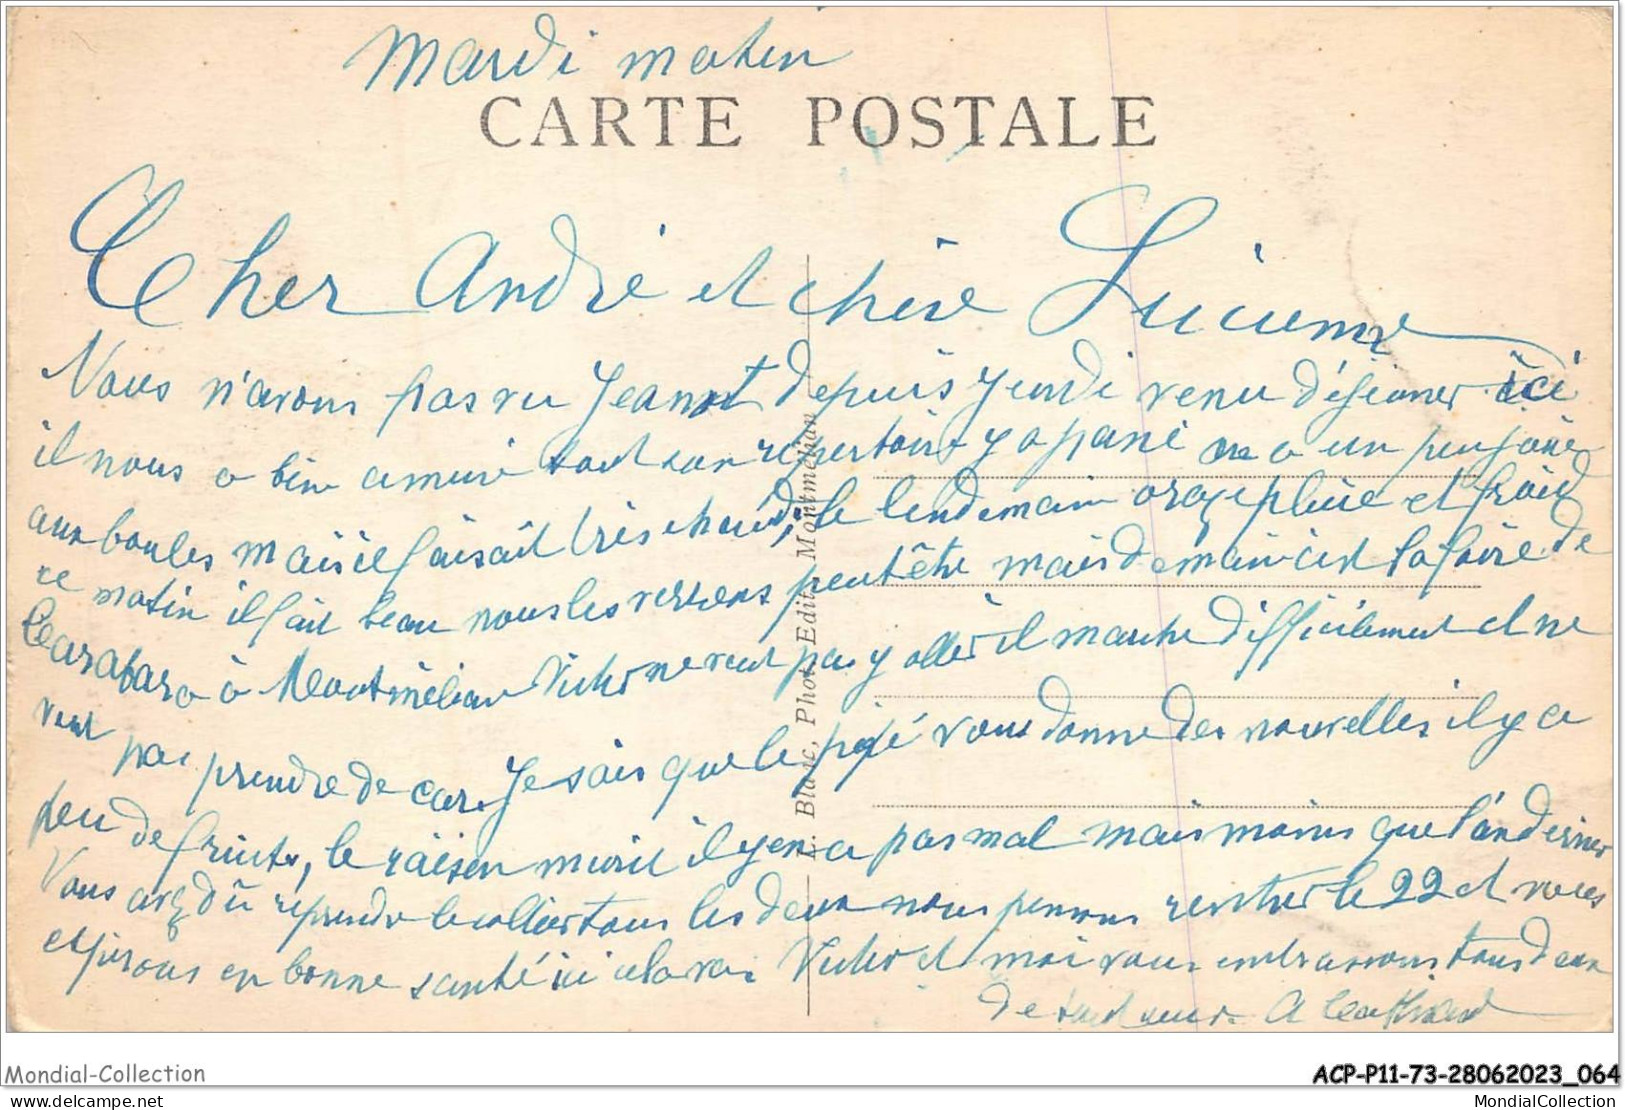 Mardi matin
CARTE POSTALE
Cher André et chère Lucienne
Nous n'avons pas vu Jeannot depuis jeudi venu déjeuner ici
il nous a bien amusé tout son repertoire y a passé on a un peu joué
aux boules mais il faisait très chaud, le lendemain orage pluie et froid
ce matin il fait beau nous les verrons peut être mais demain c'est la foire de
à Montmélian Victor ne veut pas y aller il marche difficilement et ne
veut pas prendre de car. Je sais que le vous donne des nouvelles il y a
peu de fruits, le raisen murit il y en a pas mal mais moins que l'an dernier
Vous avez dû reprendre le collier tous les deux nous pensons rentrer le 22 et vous
esperons en bonne santé ici cela va. Victor et moi vous embrassons tous deux
de tout cœur. A
L. Blanc, Phot. Edit., Montmélian
Mondial-Collection
ACP-P11-73-28062023_064
delcampe.net
MondialCollection